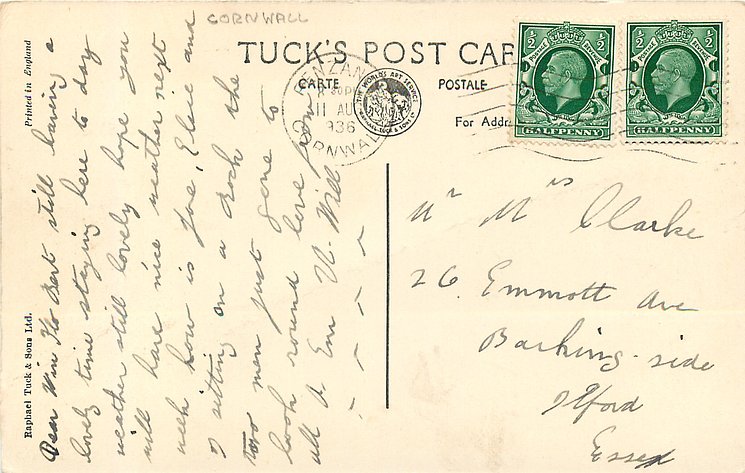 CORNWALL
TUCK'S POST CAR
CARTE
POSTALE
For Addr
PENZAN
30 P
11 AU
936
CORNWAL
THE WORLD'S ART SERVICE
RAPHAEL TUCK & SONS LTD
½ ½
POSTAGE REVENUE
HALFPENNY
½ ½
POSTAGE REVENUE
HALFPENNY
Printed in England
Raphael Tuck & Sons Ltd.
Dear Win Flo Bert still having a
lovely time staying here to day
weather still lovely hope you
will have nice weather next
week how is Joe, Elsie and
I sitting on a Rock the
two men just gone to
look round love from
all A Em U. Will
Mr Mrs Clarke
26 Emmott Ave
Barking-side
Ilford
Essex